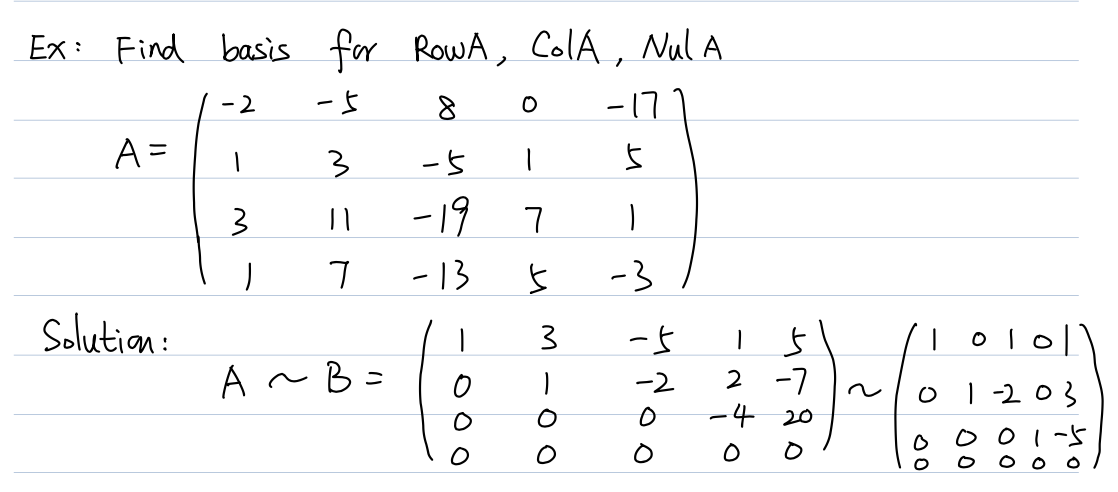 Ex: Find basis for RowA, ColA, NulA
-2 -5 8 0 -17
A = 1 3 -5 1 5
3 11 -19 7 1
1 7 -13 5 -3
Solution:
A ~ B = ( 1 3 -5 1 5 ) ~ ( 1 0 1 0 1 )
0 1 -2 2 -7 0 1 -2 0 3
0 0 0 -4 20 0 0 0 1 -5
0 0 0 0 0 0 0 0 0 0